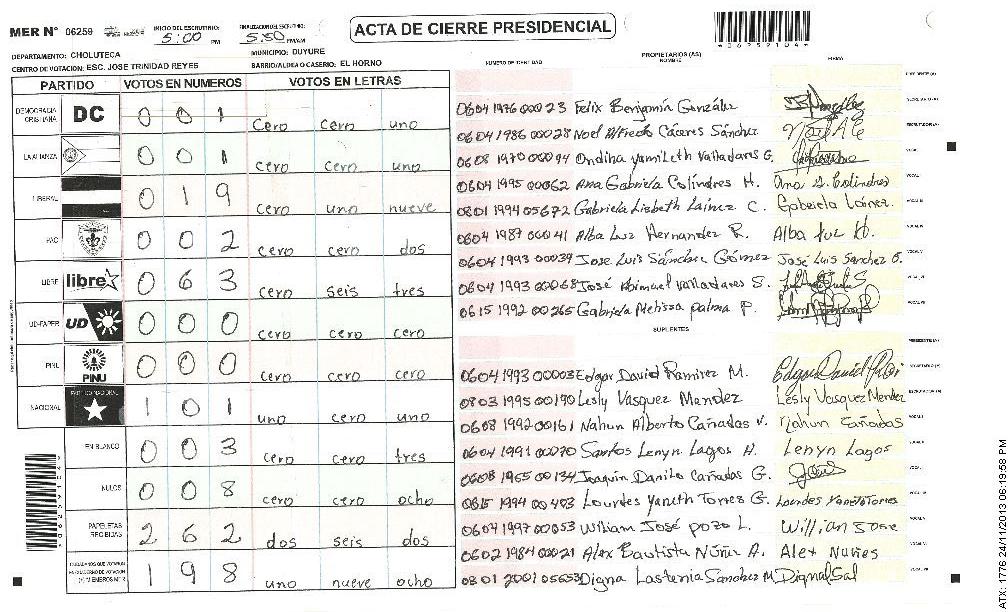 MER N° 06259 INICIO DEL ESCRUTINIO: 5:00 PM FINALIZACION DEL ESCRUTINIO: 5:50 PM/AM ACTA DE CIERRE PRESIDENCIAL
DEPARTAMENTO: CHOLUTECA MUNICIPIO: DUYURE
CENTRO DE VOTACION: ESC. JOSE TRINIDAD REYES BARRIO/ALDEA O CASERIO: EL HORNO
PARTIDO VOTOS EN NUMEROS VOTOS EN LETRAS
DEMOCRACIA CRISTIANA DC 0 0 1 cero cero uno
LA ALIANZA 0 0 1 cero cero uno
LIBERAL 0 1 9 cero uno nueve
PAC 0 0 2 cero cero dos
LIBRE libre 0 6 3 cero seis tres
UD-FAPER UD 0 0 0 cero cero cero
PINU PINU 0 0 0 cero cero cero
NACIONAL PARTIDO NACIONAL 1 0 1 uno cero uno
EN BLANCO 0 0 3 cero cero tres
NULOS 0 0 8 cero cero ocho
PAPELETAS RECIBIDAS 2 6 2 dos seis dos
CIUDADANOS QUE VOTARON 1 9 8 uno nueve ocho
NUMERO DE IDENTIDAD PROPIETARIOS (AS) NOMBRE FIRMA
0604 1976 00023 Felix Benjamín González
0604 1986 00028 Noel Alfredo Cáceres Sánchez
0608 1970 00094 Ondina Yamileth Valladares G.
0604 1995 00062 Ana Gabriela Colindres H. Ana G. Colindres
0801 1994 05672 Gabriela Lisbeth Laínez C. Gabriela Laínez
0604 1987 00041 Alba Luz Hernandez R. Alba Luz H.
0604 1993 00039 Jose Luis Sánchez Gómez José Luis Sanchez G.
0604 1993 00068 José Abimuel Valladares S.
0615 1992 00265 Gabriela Melissa Palma P.
SUPLENTES
0604 1993 00003 Edgar David Ramirez M. Edgar David
0803 1995 00190 Lesly Vasquez Mendez Lesly Vasquez Mendez
0608 1992 00161 Nahun Alberto Cañadas V. Nahun Cañadas
0604 1991 00070 Santos Lenyn Lagos H. Lenyn Lagos
0608 1965 00134 Joaquin Danilo Cañadas G.
0615 1994 00493 Lourdes Yaneth Torres G. Lourdes Yaneth Torres
0604 1997 00053 William José pozo L. Willian Jose
0602 1984 00021 Alex Bautista Núñez A. Alex Nuñes
0801 2001 05653 Digna Lastenia Sanchez M.
ATX: 1776 24/11/2013 06:19:58 PM